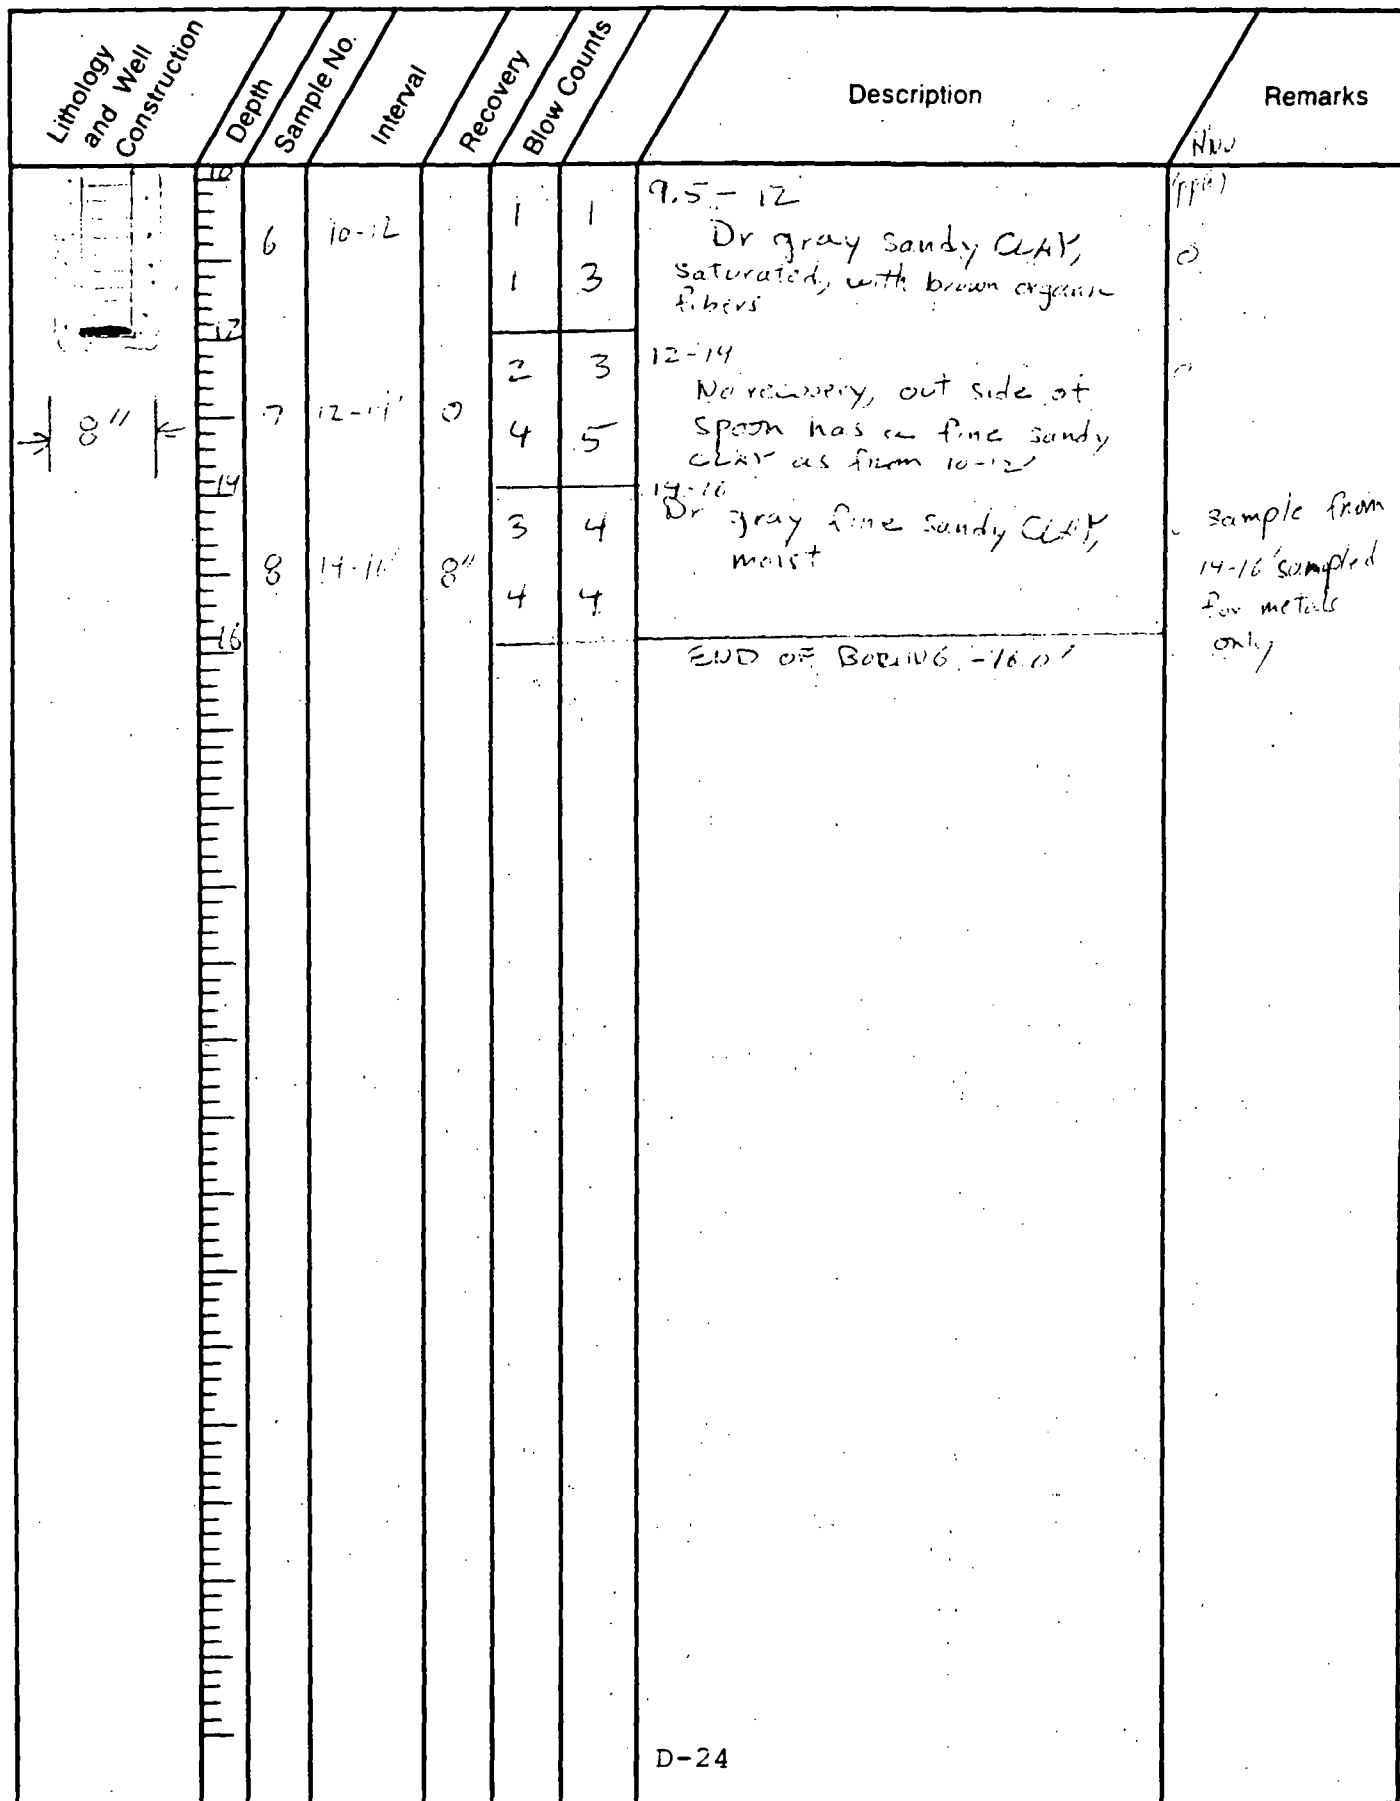 Lithology
and Well
Construction
Depth
Sample No.
Interval
Recovery
Blow Counts
Description
Remarks
HNU
(ppm)
10
6 10-12 1 1
1 3
9.5 - 12
Dr gray sandy CLAY,
saturated, with brown organic
fibers
0
12
7 12-14' 0 2 3
4 5
12-14
No recovery, out side of
spoon has a fine sandy
CLAY as from 10-12'
0
8"
14
8 14-16' 8" 3 4
4 4
14-16
Dr gray fine sandy CLAY,
moist
sample from
14-16' sampled
for metals
only
16
END OF BORING - 16.0'
D-24